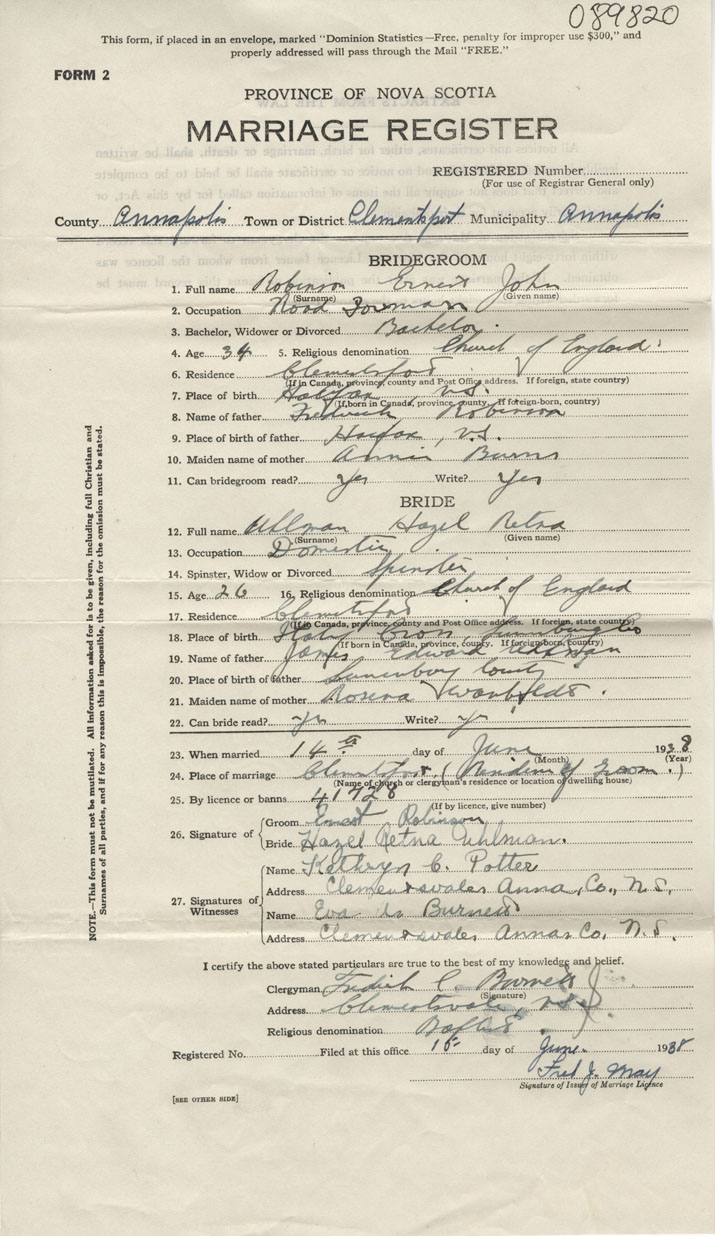 089820
This form, if placed in an envelope, marked "Dominion Statistics—Free, penalty for improper use $300," and
properly addressed will pass through the Mail "FREE."
FORM 2
PROVINCE OF NOVA SCOTIA
MARRIAGE REGISTER
REGISTERED Number
(For use of Registrar General only)
County Annapolis Town or District Clementsport Municipality Annapolis
BRIDEGROOM
1. Full name Robinson Ernest John
(Surname) (Given name)
2. Occupation Road Foreman
3. Bachelor, Widower or Divorced Bachelor
4. Age 34 5. Religious denomination Church of England
6. Residence Clementsport
(If in Canada, province, county and Post Office address. If foreign, state country)
7. Place of birth Halifax, N.S.
(If born in Canada, province, county. If foreign-born, country)
8. Name of father Frederick Robinson
9. Place of birth of father Haifax, N.S.
10. Maiden name of mother Annie Burns
11. Can bridegroom read? Yes Write? Yes
BRIDE
12. Full name Uhlman Hazel Retna
(Surname) (Given name)
13. Occupation Domestic
14. Spinster, Widow or Divorced Spinster
15. Age 26 16. Religious denomination Church of England
17. Residence Clementsport
(If in Canada, province, county and Post Office address. If foreign, state country)
18. Place of birth
(If born in Canada, province, county. If foreign-born, country)
19. Name of father James Edward
20. Place of birth of father Lunenburg County
21. Maiden name of mother Rosena
22. Can bride read? Yes Write? Yes
23. When married 14th day of June 1938
(Month) (Year)
24. Place of marriage Clementsport (Residence of Groom.)
(Name of church or clergyman's residence or location of dwelling house)
25. By licence or banns 41728
(If by licence, give number)
26. Signature of
Groom Ernest Robinson
Bride Hazel Retna Uhlman.
27. Signatures of Witnesses
Name Kathryn C. Potter
Address Clementsvale, Anna, Co., N.S.
Name Eva Burnett
Address Clementsvale, Annas Co, N.S.
I certify the above stated particulars are true to the best of my knowledge and belief.
Clergyman C. Burnett
(Signature)
Address Clementsvale, N.S.
Religious denomination Baptist
Registered No. Filed at this office 15 day of June 1938
Fred J. May
Signature of Issuer of Marriage Licence
[SEE OTHER SIDE]
NOTE.—This form must not be mutilated. All information asked for is to be given, including full Christian and
Surnames of all parties, and if for any reason this is impossible, the reason for the omission must be stated.